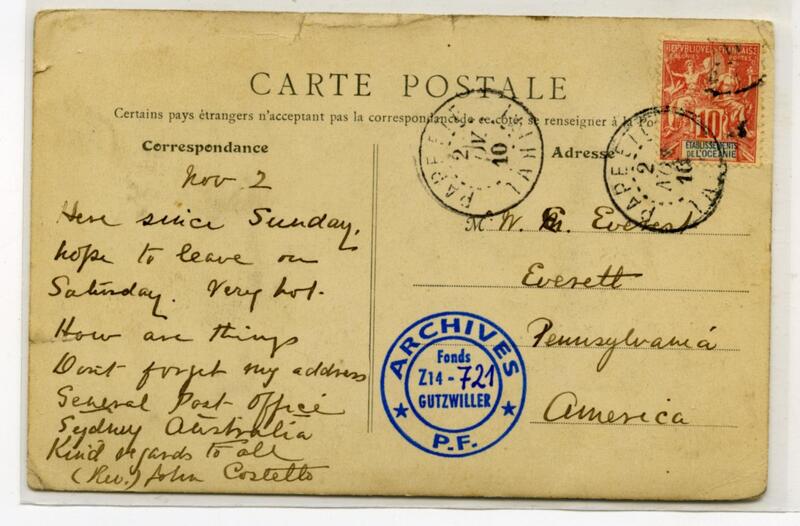 REPUBLIQUE FRANÇAISE
COLONIES POSTES
10
ETABLISSEMENTS
DE L'OCEANIE
CARTE POSTALE
Certains pays étrangers n'acceptent pas la correspondance de ce côté, se renseigner à la Po
Correspondance
Adresse
PAPEETE
2
NOV
10
TAHITI
PAPEETE
2
NOV
10
Nov 2
Here since Sunday,
hope to leave on
Saturday. Very hot.
How are things
Dont forget my address
General Post Office
Sydney Australia
Kind regards to all
(Rev.) John Costello
M. W. Everest
Everett
Pennsylvania
America
ARCHIVES
Fonds
Z14-721
GUTZWILLER
P.F.